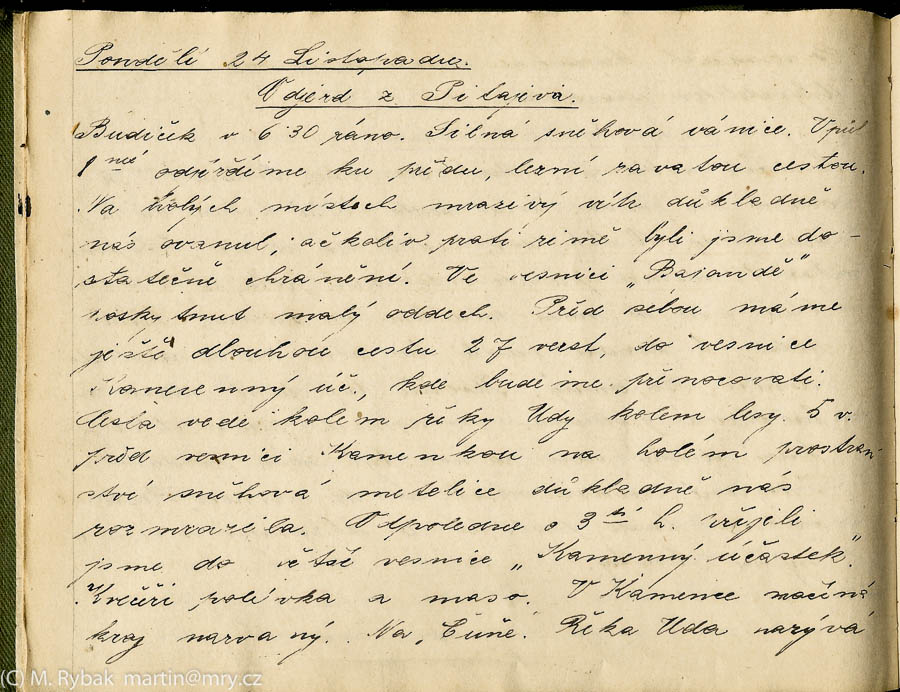 Pondělí 24 Listopadu.
Odjezd z Pitajeva.
Budíček v 6 30 ráno. Silná sněhová vánice. V půl
1 né odjíždíme ku předu, lezní zavatou cestou.
Na holých místech mrazivý vítr důkladně
nás ovanul, ačkoliv proti zimě byli jsme do-
statečně chráněni. Ve vesnici „Bajandě"
poskytnut malý oddech. Před sebou máme
ještě dlouhou cestu 27 verst, do vesnice
Kamenný úč., kde budeme přenocovati.
Cesta vede kolem řeky Udy kolem lesy. 5 v.
před vesnicí Kamenkou na holém prostran-
ství sněhová metelice důkladně nás
rozmrazila. Odpoledne o 3 tí h. vřijeli
jsme do větší vesnice „Kamenný účastek".
K večeři polévka a maso. V Kamence začíná
kraj nazvaný. Na „Čuně. Řeka Uda nazývá
(C) M. Rybak martin@mry.cz